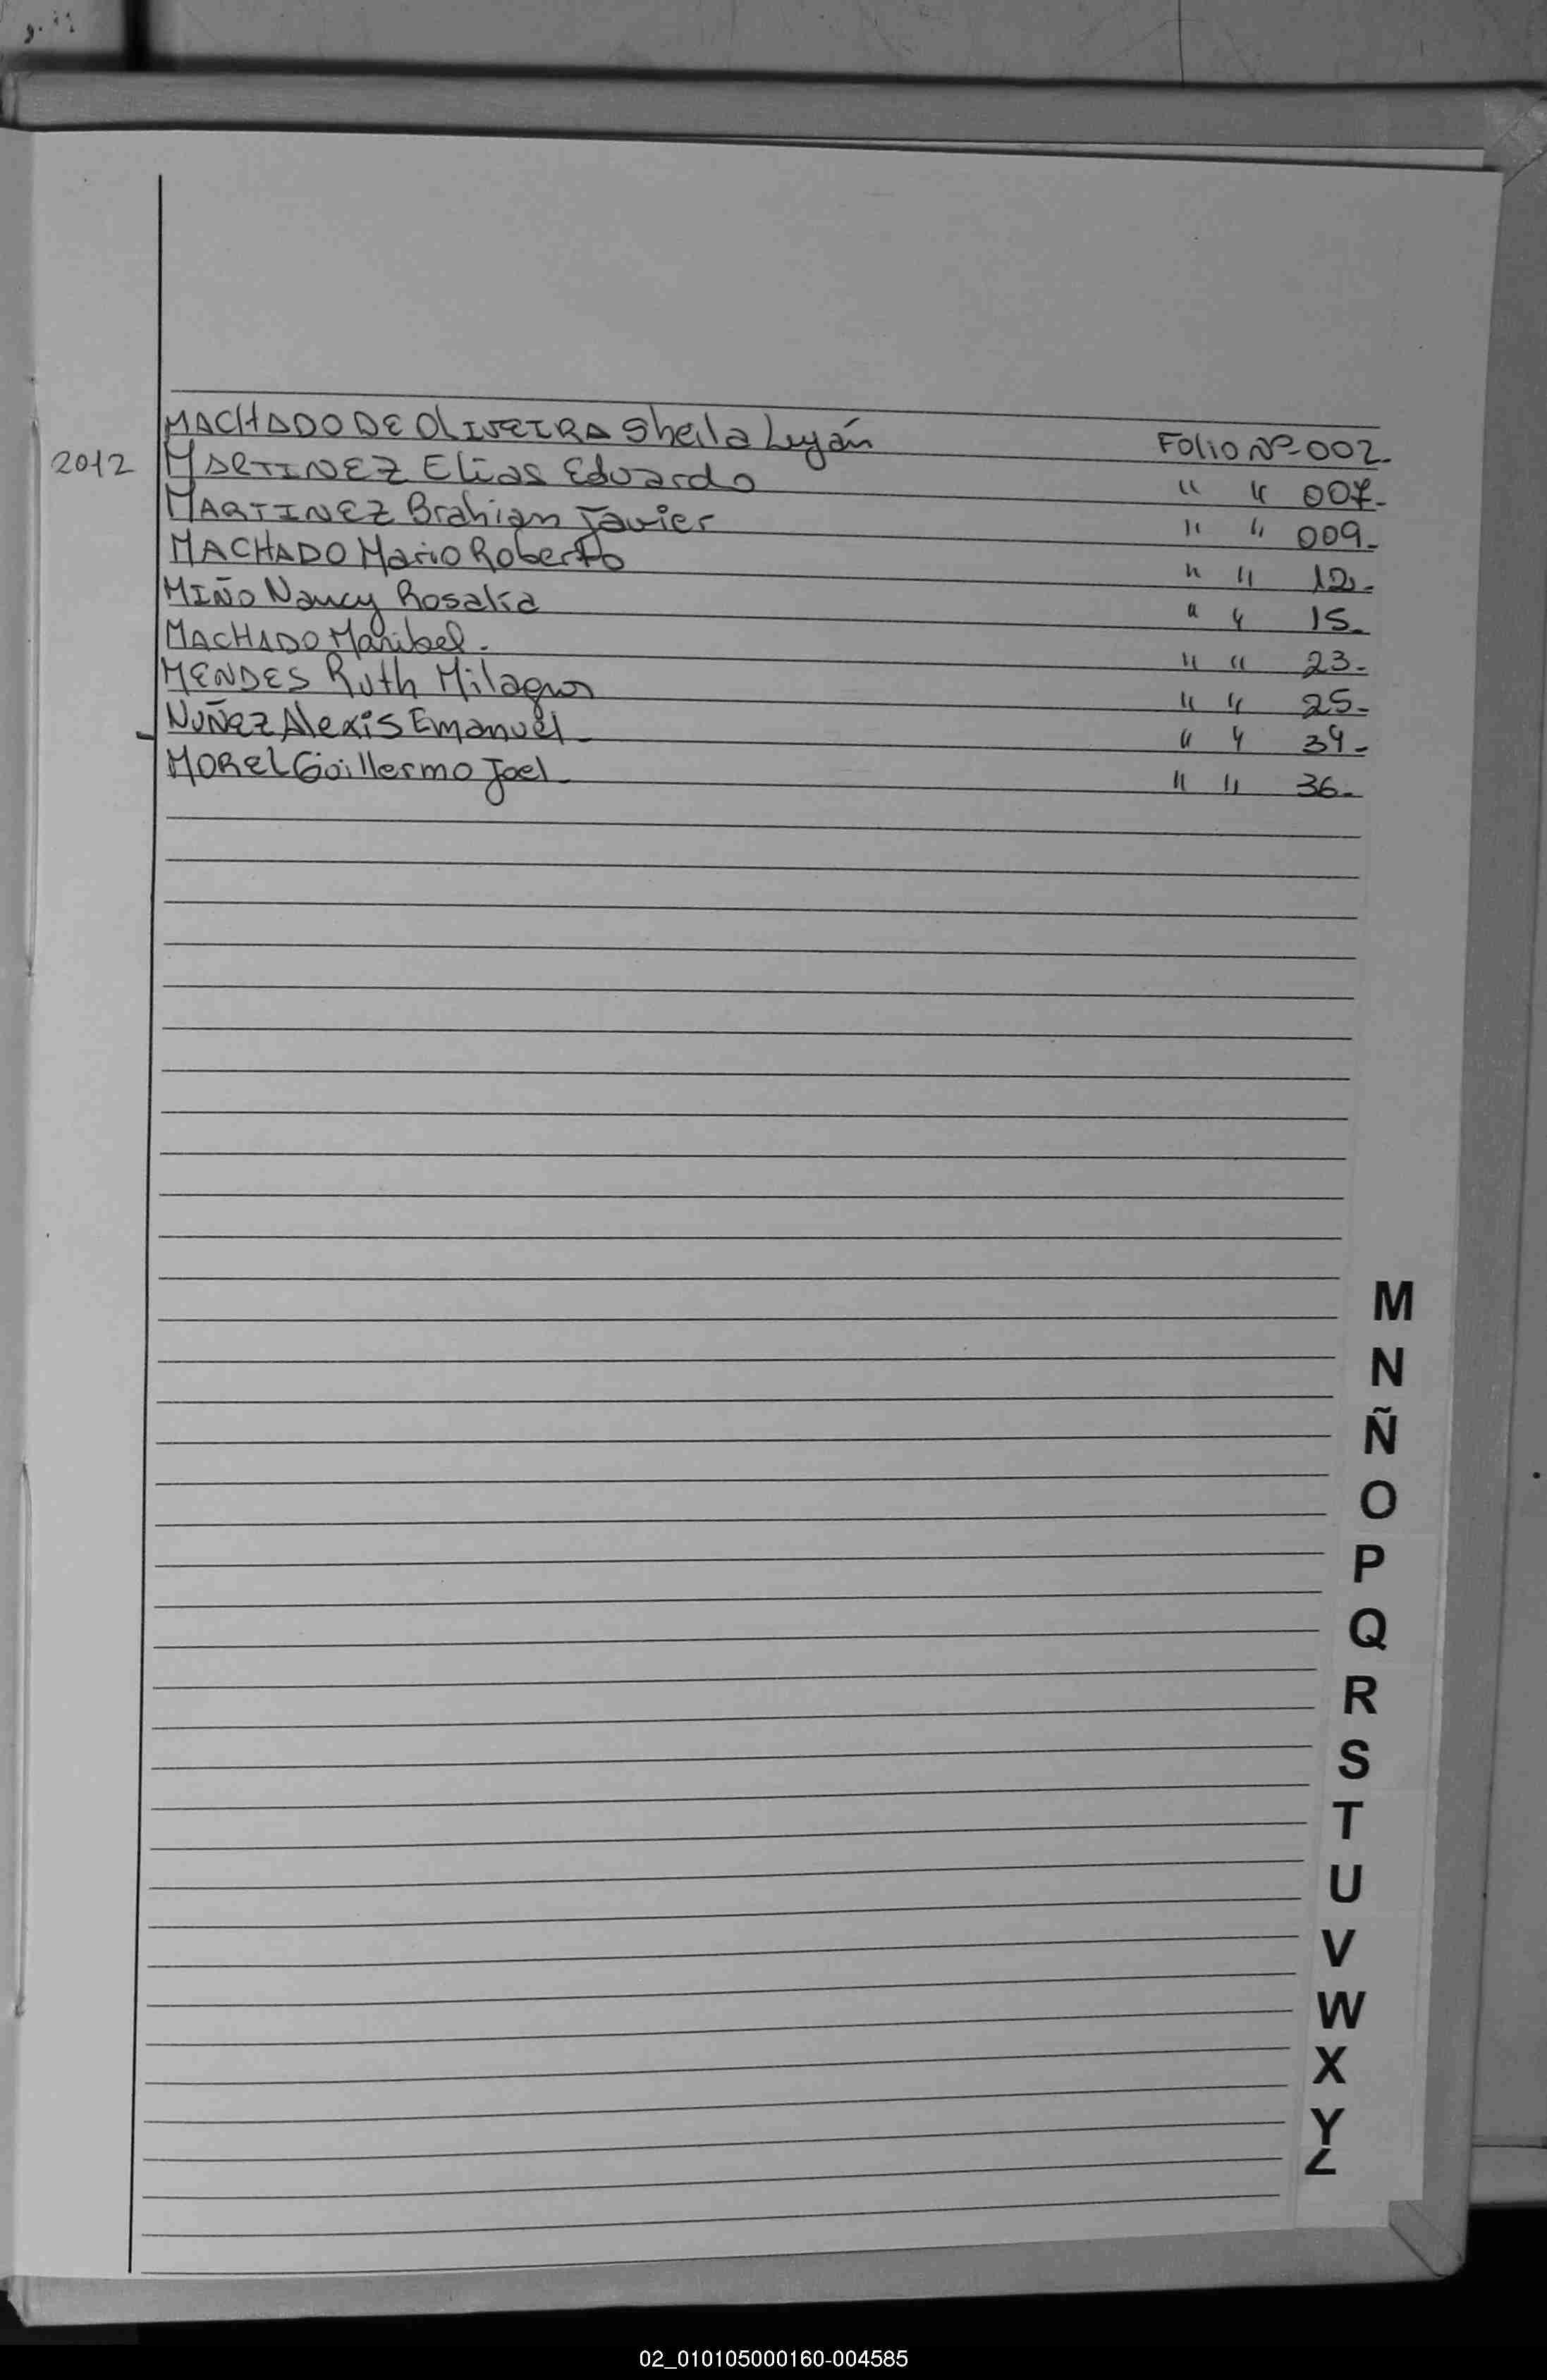 MACHADO DE OLIVEIRA Sheila Luján Folio Nº 002.
2012 MARTINEZ Elias Eduardo " " 007.
MARTINEZ Brahian Javier " " 009.
MACHADO Mario Roberto " " 12.
MIÑO Nancy Rosalia " " 15.
MACHADO Maribel. " " 23.
MENDES Ruth Milagros " " 25.
NUÑEZ Alexis Emanuel " " 34.
MOREL Guillermo Joel " " 36.
M
N
Ñ
O
P
Q
R
S
T
U
V
W
X
Y
Z
02_010105000160-004585